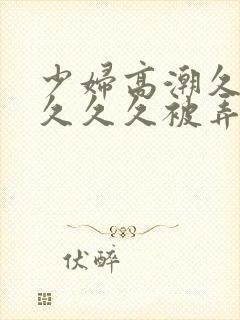 少婦高潮久
久久久被弄
伏醉